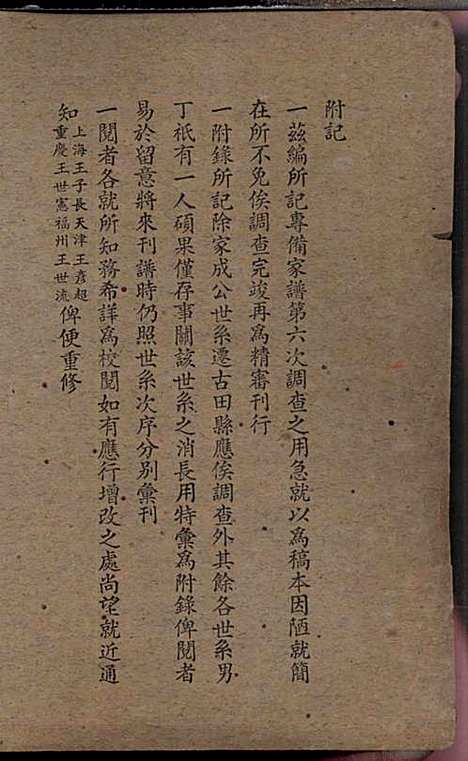 附記
一茲編所記專備家譜第六次調查之用急就以為稿本因陋就簡
在所不免俟調查完竣再為精審刊行
一附錄所記除家成公世系遷古田縣應俟調查外其餘各世系男
丁祇有一人碩果僅存事關該世系之消長用特彙為附錄俾閱者
易於留意將來刊譜時仍照世系次序分別彙刊
一閱者各就所知務希詳為校閱如有應行增改之處尚望就近通
知上海王子長天津王彥超重慶王世憲福州王世流俾便重修